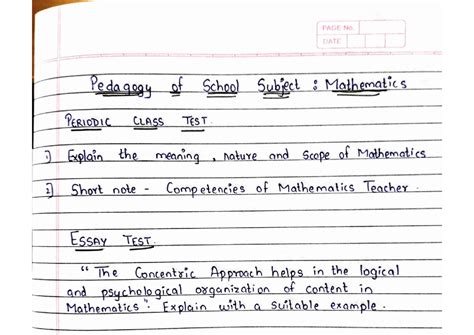 PAGE No.
DATE
Pedagogy of School Subject : Mathematics
PERIODIC CLASS TEST.
1) Explain the meaning, nature and scope of Mathematics
2) Short note - Competencies of Mathematics Teacher.
ESSAY TEST.
"The Concentric Approach helps in the logical
and psychological organization of content in
Mathematics". Explain with a suitable example.